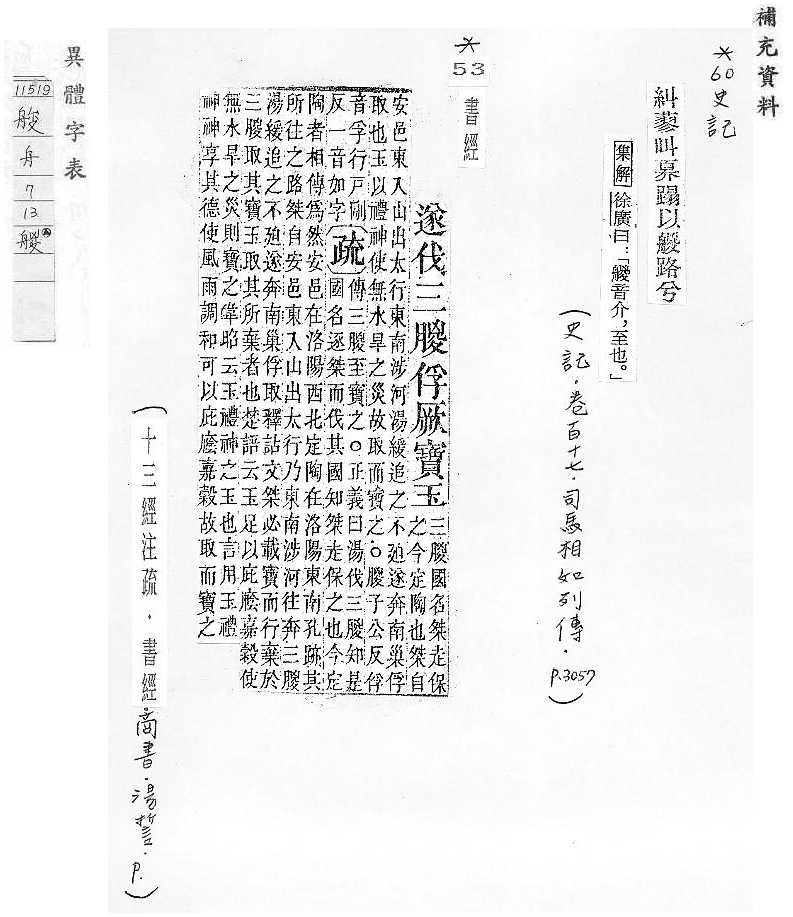 補充資料
*60史記
糾蓼叫奡蹋以艐路兮
集解 徐廣曰：「艐音介，至也。」
（史記．卷百十七．司馬相如列傳．P.3057）
*53 書經
遂伐三朡俘厥寶玉
三朡國名桀走保
之今定陶也桀自
安邑東入山出太行東南涉河湯緩追之不迫遂奔南巢俘
取也玉以禮神使無水旱之災故取而寶之○朡子公反俘
音孚行戸剛 傳三朡至寶之○正義曰湯伐三朡知是
反一音如字 疏 國名逐桀而伐其國知桀走保之也今定
陶者相傳爲然安邑在洛陽西北定陶在洛陽東南孔跡其
所往之路桀自安邑東入山出太行乃東南涉河往奔三朡
湯緩追之不迫遂奔南巢俘取釋詁文桀必載寶而行棄於
三朡取其寶玉取其所棄者也楚語云玉足以庇廕嘉穀使
無水旱之災則寶之韋昭云玉禮神之玉也言用玉禮
神神享其德使風雨調和可以庇廕嘉穀故取而寶之
（十三經注疏．書經商書．湯誓．P.）
異體字表
11519
艐
舟
7
13